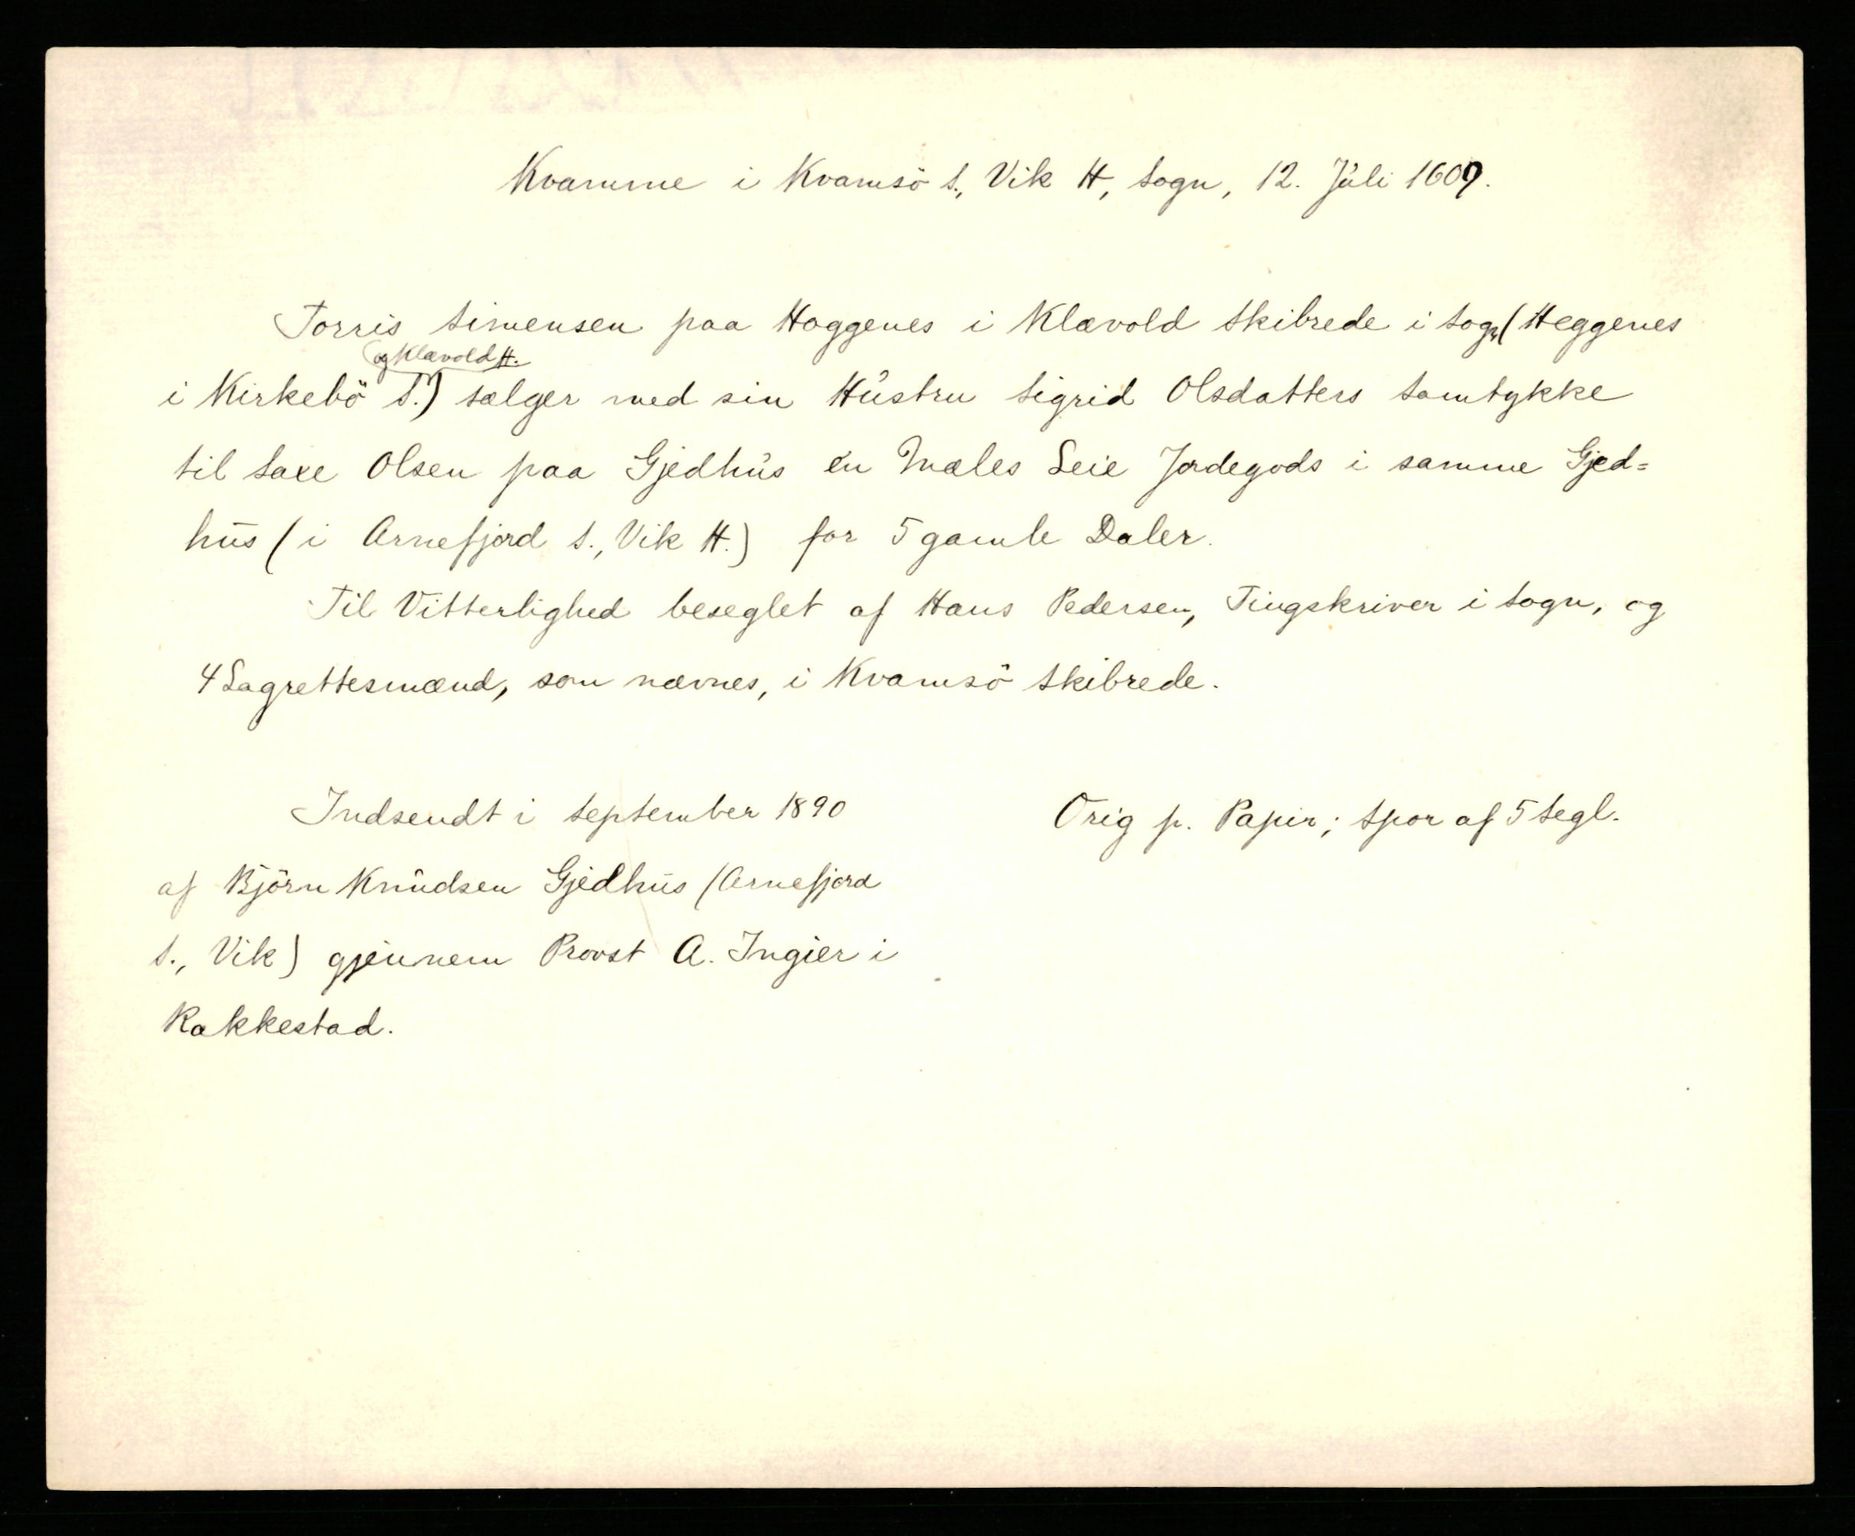 Kvamme i Kvamsö S., Vik H, Sogn, 12. Juli 1609.
Torris Simensen paa Haggenes i Klævold Skibrede i Sogn (Heggenes
og Klævold H.
i Kirkebö S.) sælger med sin Hustru Sigrid Olsdatters Samtykke
til Saxe Olsen paa Gjedhus én Mæles Leie Jordegods i samme Gjed=
hus (i Arnefjord S., Vik H.) for 5 gamle Daler.
Til Vitterlighed beseglet af Hans Pedersen, Tingskriver i Sogn, og
4 Lagrettesmænd, som nævnes, i Kvamsö Skibrede.
Indsendt i September 1890
Orig p. Papir; Spor af 5 Segl.
af Björn Knudsen Gjedhus (Arnefjord
S., Vik) gjennem Provst A. Ingier i
Rakkestad.